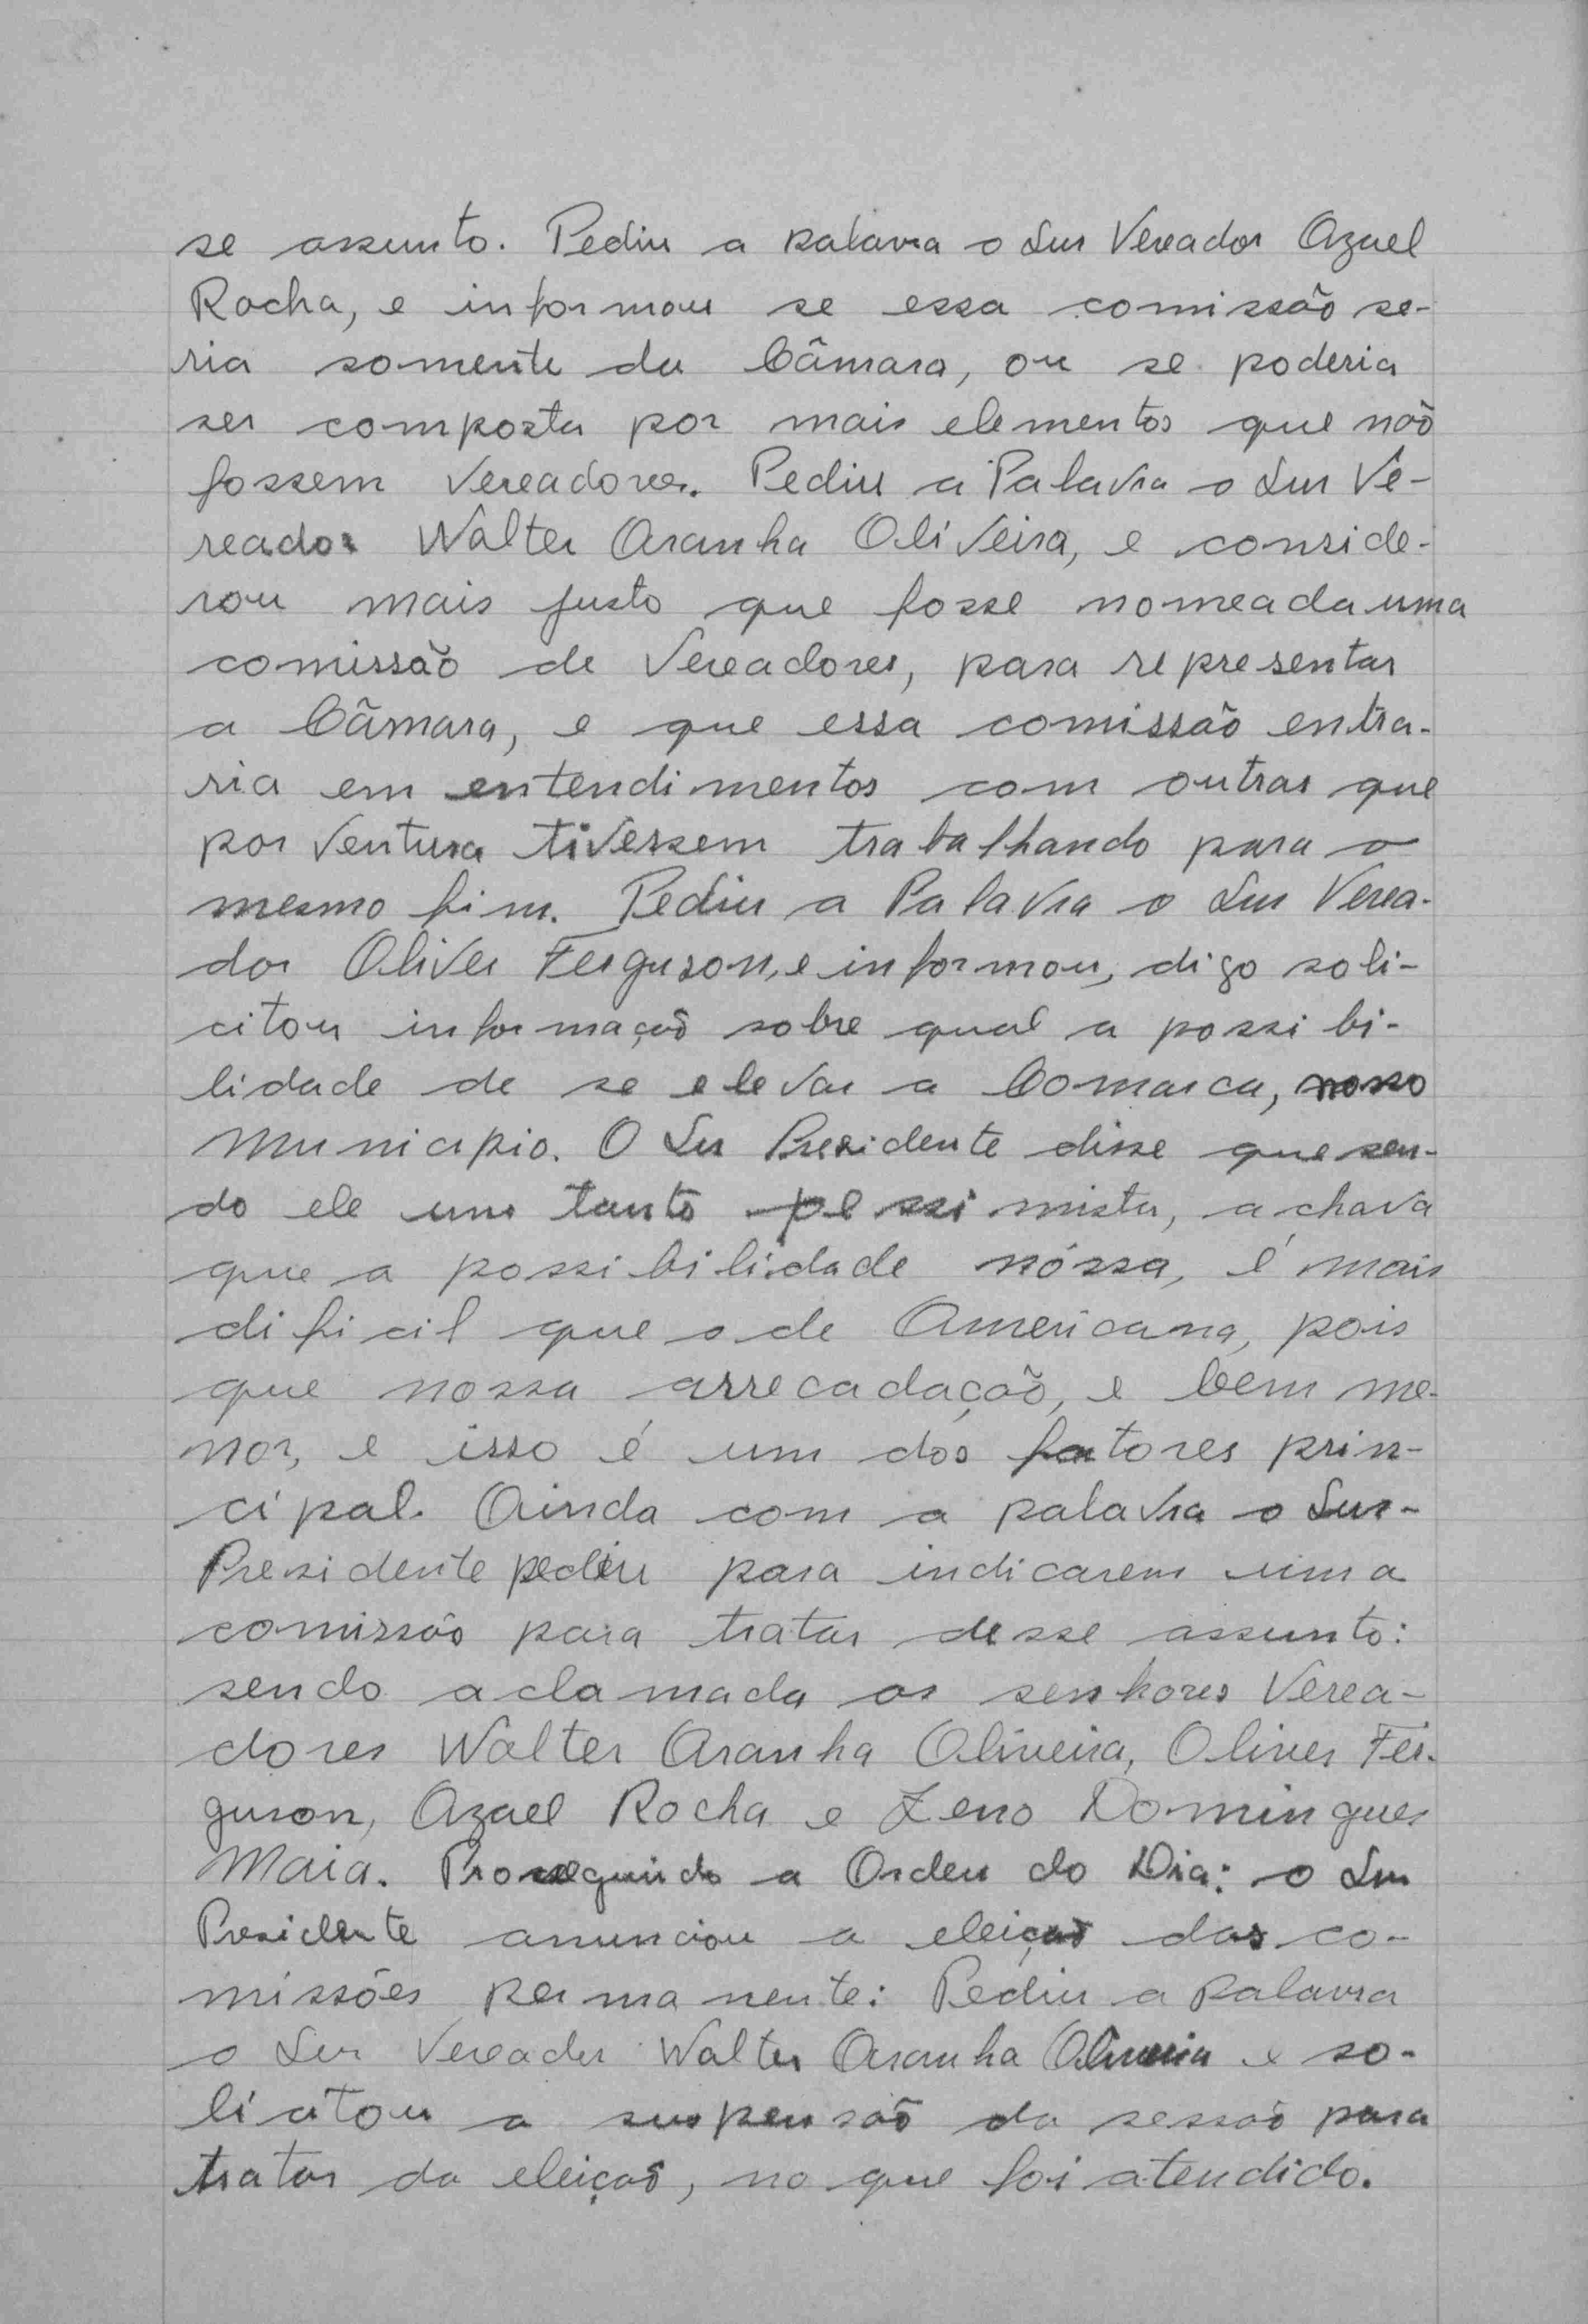 se assunto. Pediu a palavra o Snr Vereador Azael
Rocha, e informou se essa comissão se-
ria somente da Câmara, ou se poderia
ser composta por mais elementos que não
fossem Vereadores. Pediu a Palavra o Snr Ve-
reador Walter Aranha Oliveira, e conside-
rou mais justo que fosse nomeada uma
comissão de Vereadores, para representar
a Câmara, e que essa comissão entra-
ria em entendimentos com outras que
por Ventura tivessem trabalhando para o
mesmo fim. Pediu a Palavra o Snr Verea-
dor Oliver Ferguson, e informou, digo soli-
citou informação sobre qual a possibi-
lidade de se elevar a Comarca, nosso
Municipio. O Snr Presidente disse que sen-
do ele um tanto pessimista, achava
que a possibilidade nóssa, é mais
dificil que o de Americana, pois
que nossa arrecadação, e bem me-
nor, e isso é um dos fatores prin-
cipal. Ainda com a palavra o Snr-
Presidente pediu para indicarem uma
comissão para tratar desse assunto:
sendo aclamada os senhores Verea-
dores Walter Aranha Oliveira, Oliver Fer-
guson, Azael Rocha e Zeno Domingues
Maia. Proseguindo a Orden do Dia: o Snr
Presidente anunciou a eleição das co-
missões permanente: Pediu a palavra
o Snr Vereador Walter Aranha Oliveira e so-
licitou a suspensão da sessão para
tratar da eleição, no que foi atendido.